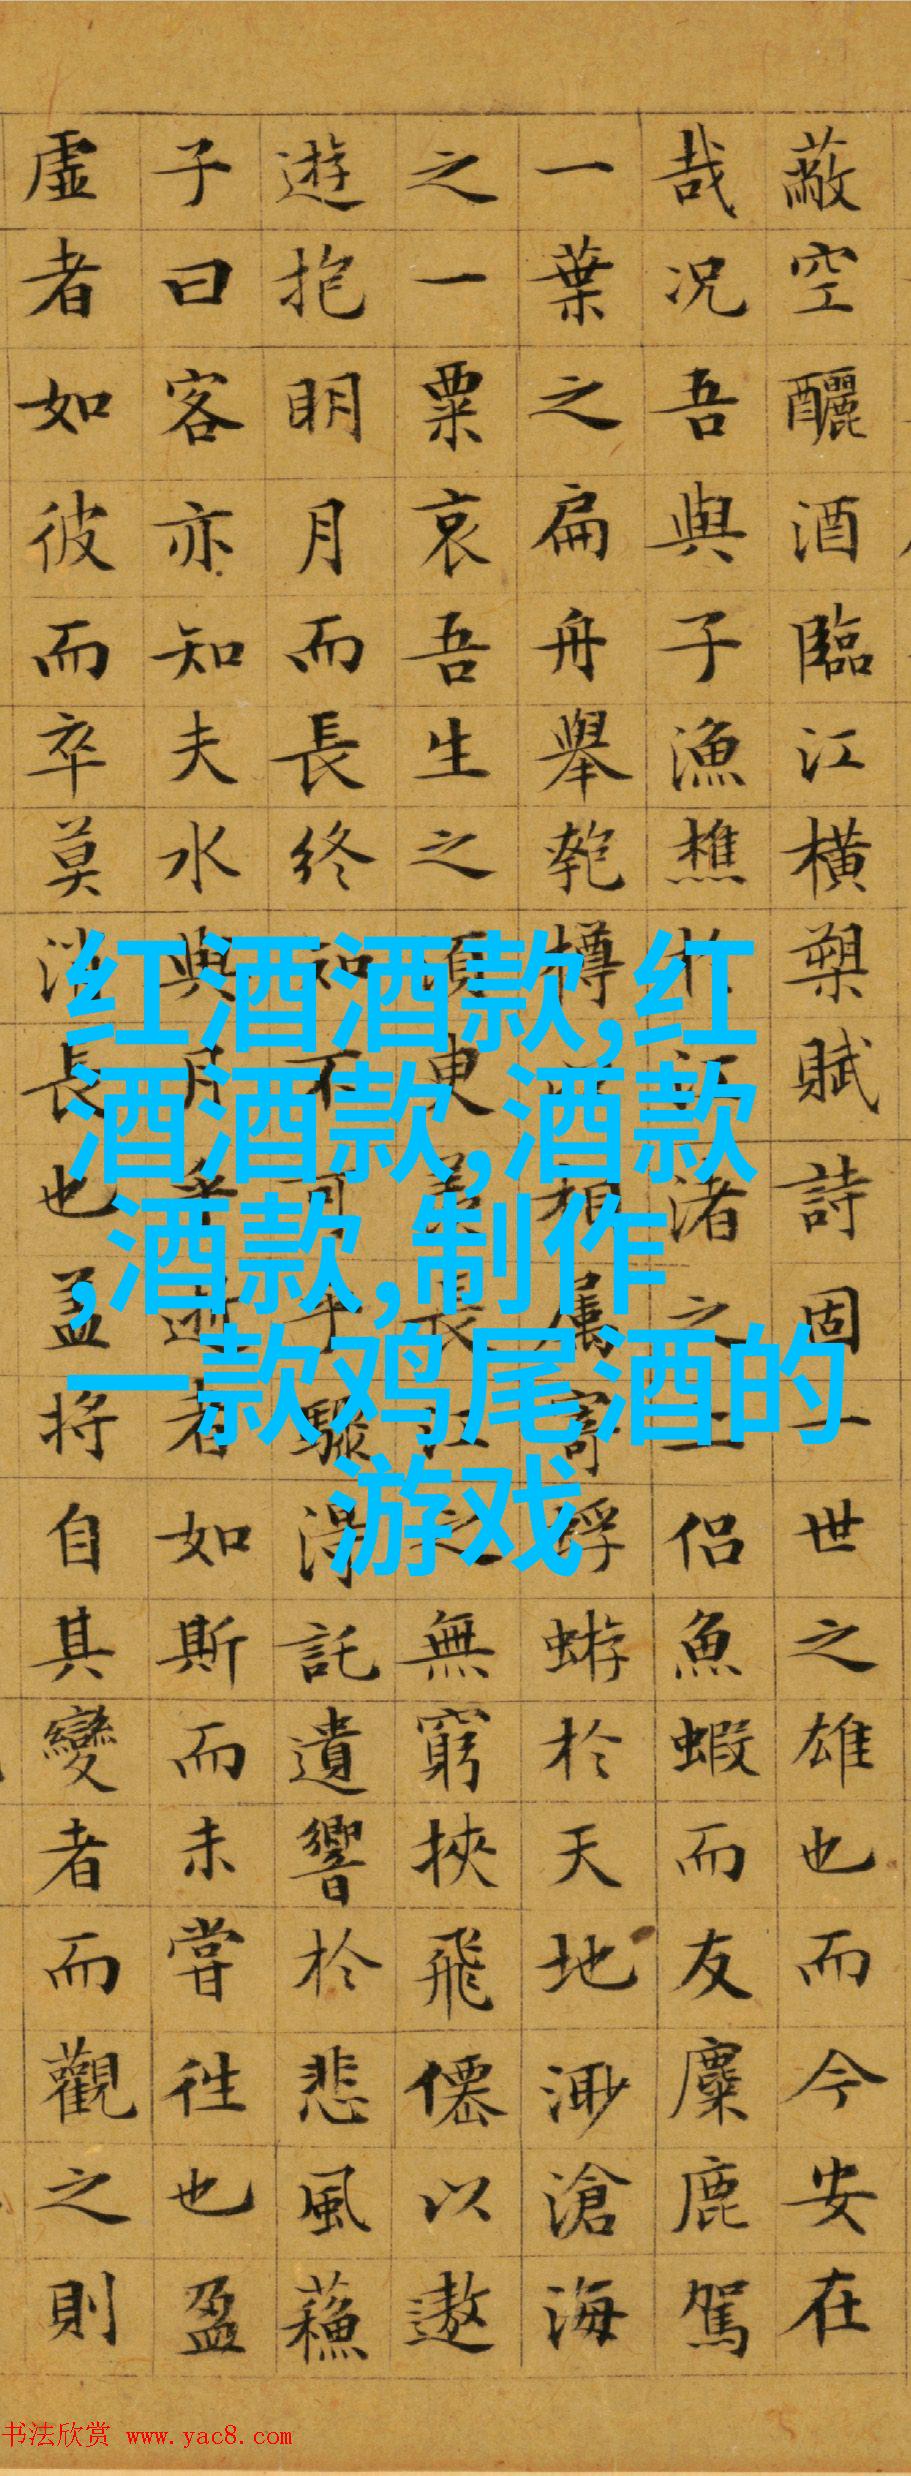 蔽空釃酒臨江橫槊賦詩固一世之雄也而今安在
哉况吾與子漁樵於江渚之上侶魚蝦而友麋鹿駕
一葉之扁舟舉匏樽以相属寄蜉蝣於天地渺滄海
之一粟哀吾生之須臾羨長江之無窮挾飛僊以遨
遊抱明月而長終知不可乎驟得託遺響於悲風蘇
子曰客亦知夫水與月乎逝者如斯而未嘗往也盈
虛者如彼而卒莫消長也盖將自其變者而觀之則
红酒酒款,红
酒酒款,酒款
,酒款,制作
一款鸡尾酒的
游戏
书法欣赏 www.yac8.com